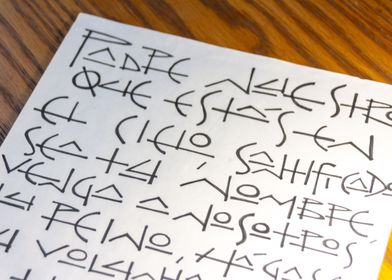 Padre nuestro
que estás en
el cielo,
santificado
sea tu nombre
venga a nosotros
tu reino, hágase
tu voluntad